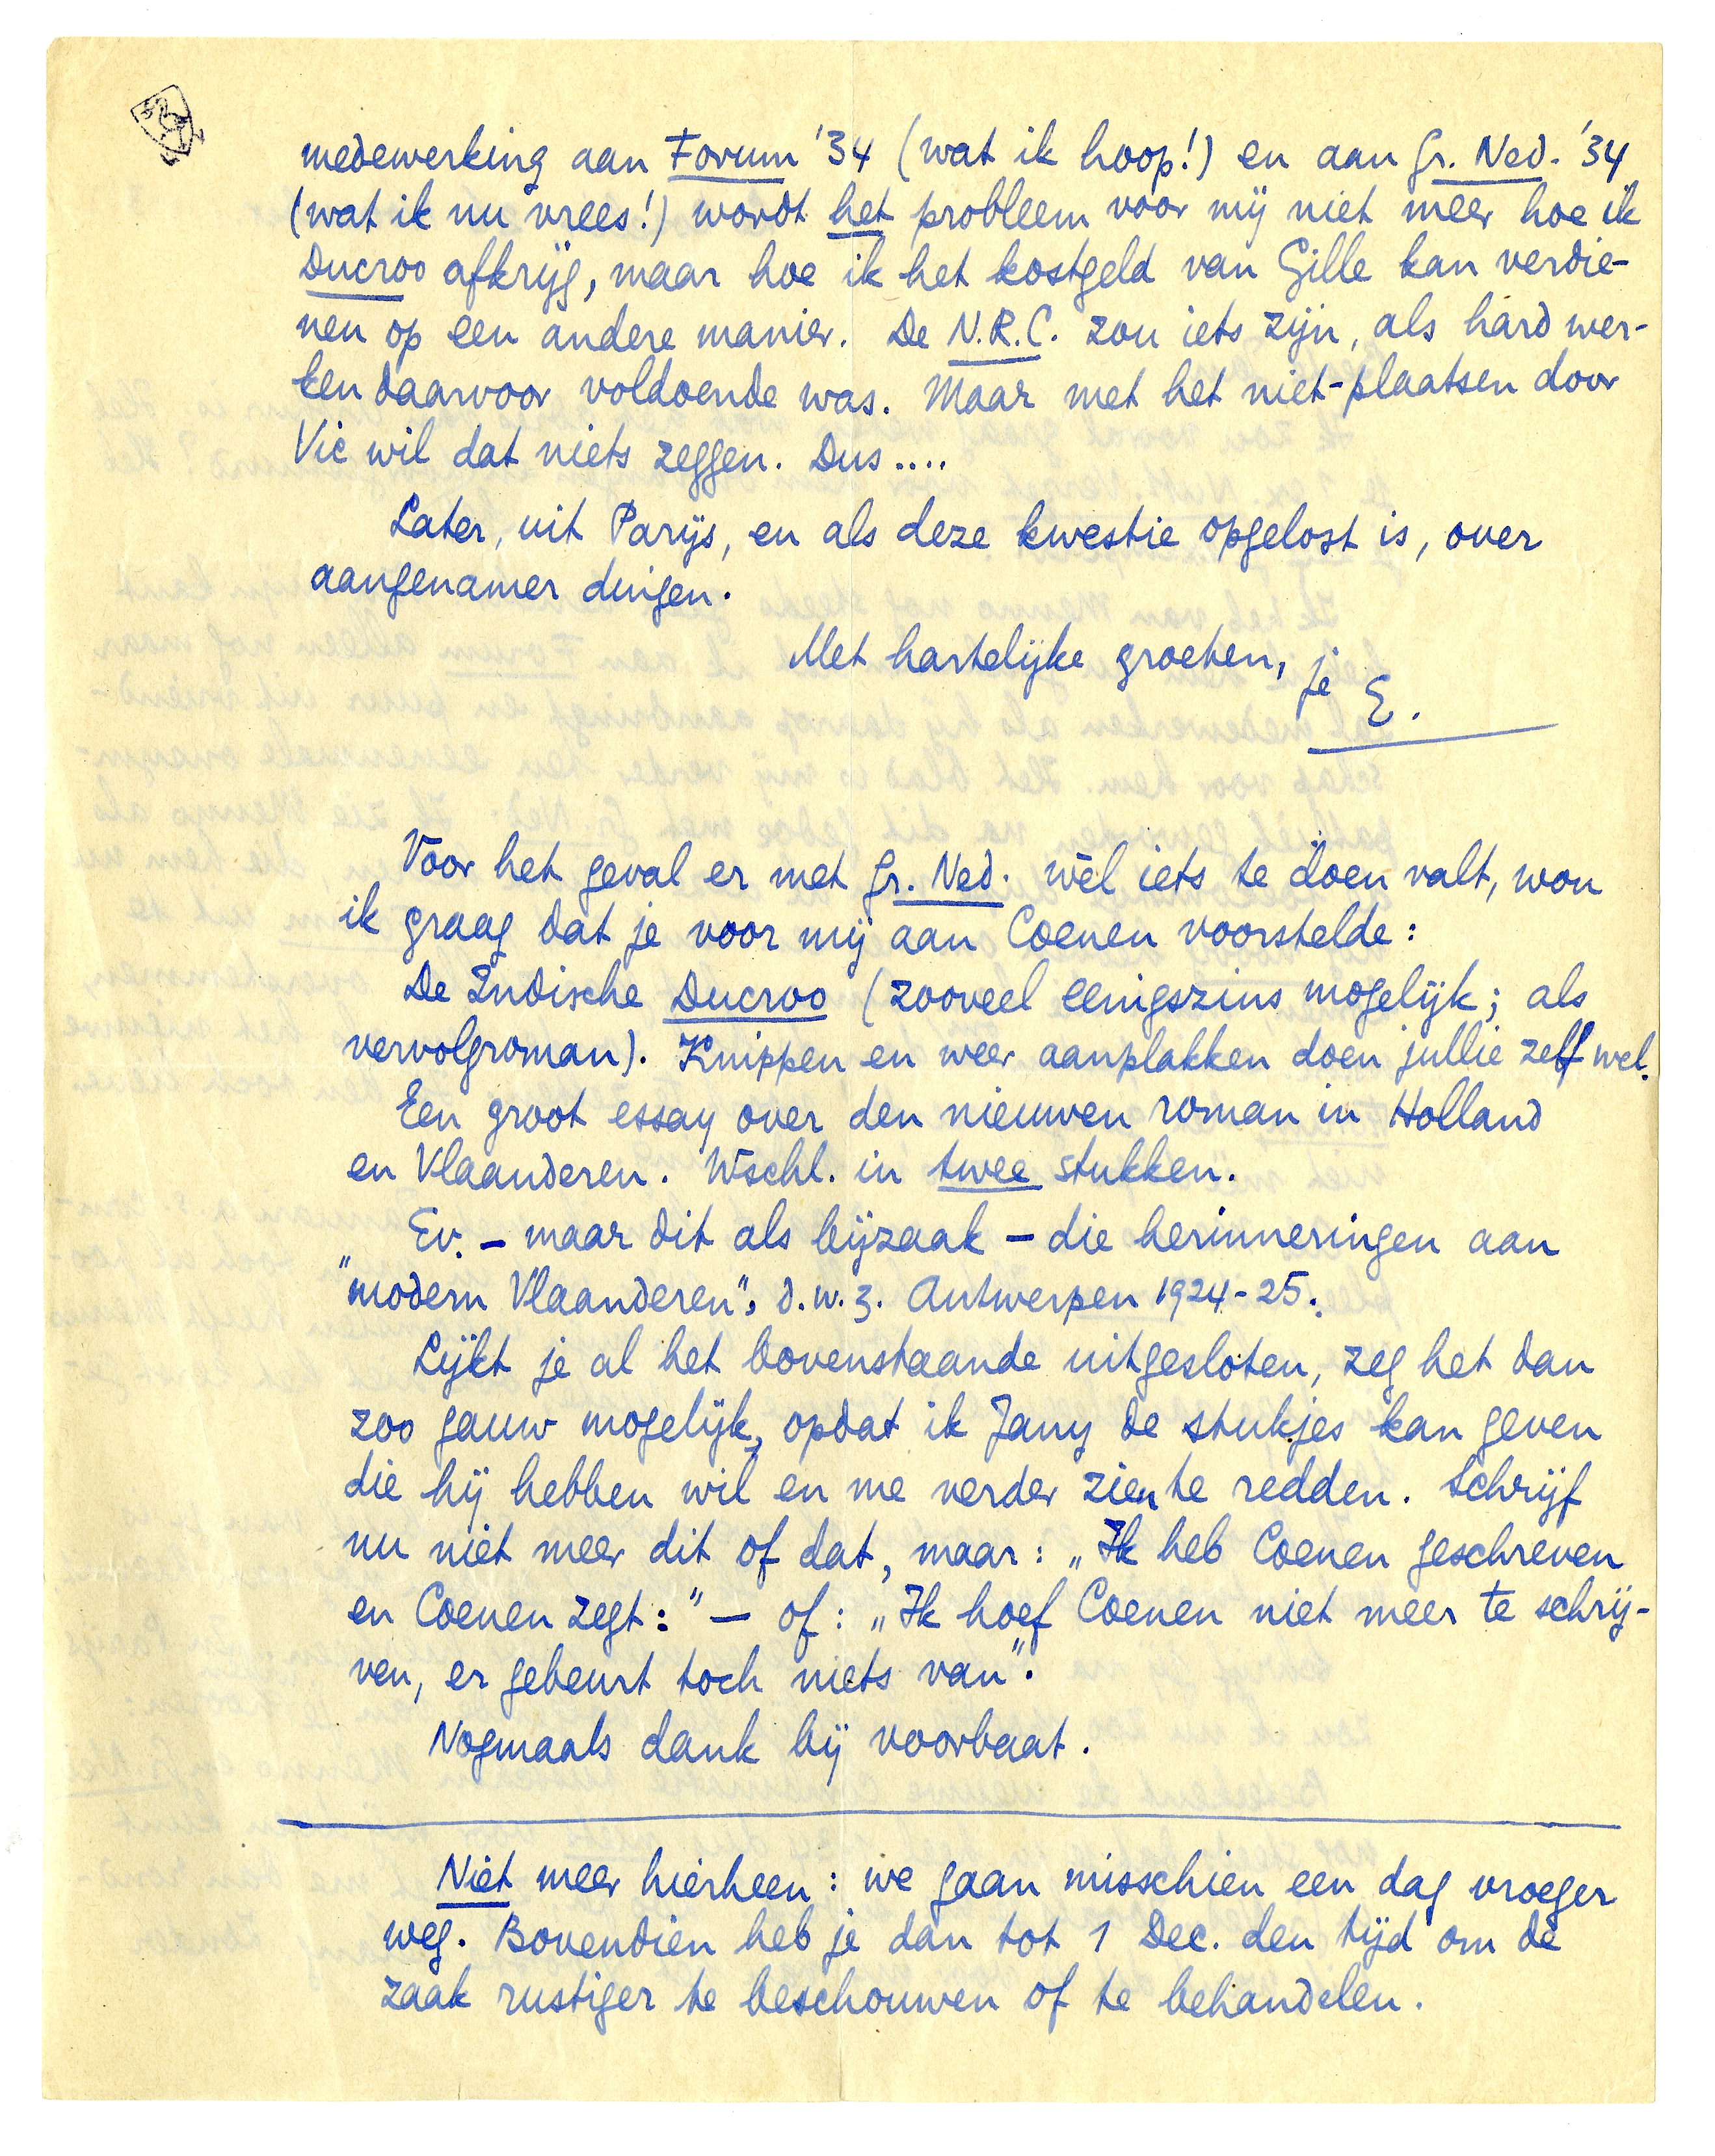 medewerking aan Forum '34 (wat ik hoop!) en aan Gr. Ned. '34
(wat ik nu vrees!) wordt het probleem voor mij niet meer hoe ik
Ducroo afkrijg, maar hoe ik het kostgeld van Gille kan verdie-
nen op een andere manier. De N.R.C. zou iets zijn, als hard wer-
ken daarvoor voldoende was. Maar met het niet-plaatsen door
Vic wil dat niets zeggen. Dus ....
Later, uit Parijs, en als deze kwestie opgelost is, over
aangenamer dingen.
Met hartelijke groeten, je
E.
Voor het geval er met Gr. Ned. wèl iets te doen valt, wou
ik graag dat je voor mij aan Coenen voorstelde:
De Indische Ducroo (zooveel eenigszins mogelijk; als
vervolgroman). Knippen en weer aanplakken doen jullie zelf wel.
Een groot essay over den nieuwen roman in Holland
en Vlaanderen. Wschl. in twee stukken.
Ev. – maar dit als bijzaak – die herinneringen aan
"modern Vlaanderen", d.w.z. Antwerpen 1924-25.
Lijkt je al het bovenstaande uitgesloten, zeg het dan
zoo gauw mogelijk, opdat ik Jany de stukjes kan geven
die hij hebben wil en me verder zien te redden. Schrijf
nu niet meer dit of dat, maar: „Ik heb Coenen geschreven
en Coenen zegt:" – of: „Ik hoef Coenen niet meer te schrij-
ven, er gebeurt toch niets van".
Nogmaals dank bij voorbaat.
Niet meer hierheen: we gaan misschien een dag vroeger
weg. Bovendien heb je dan tot 1 Dec. den tijd om de
zaak rustiger te beschouwen of te behandelen.